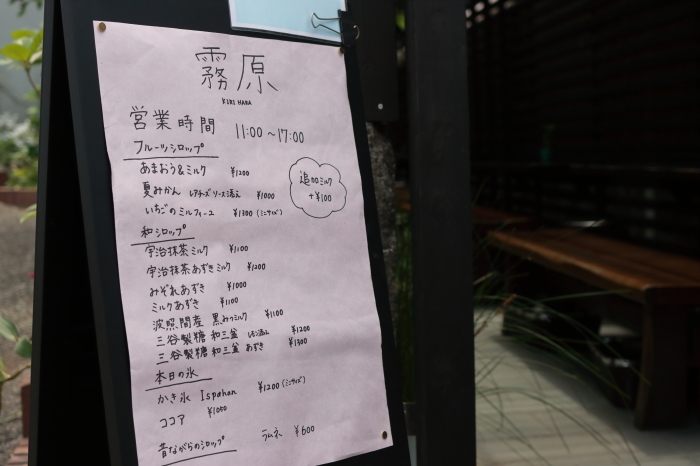 霧原
KIRI HARA
営業時間 11:00〜17:00
フルーツシロップ
あまおう&ミルク ¥1200
夏みかん レアチーズソース添え ¥1000
いちごのミルフィーユ ¥1300 (ミニサイズ)
追加ミルク
+¥100
和シロップ
宇治抹茶ミルク ¥1100
宇治抹茶あずきミルク ¥1200
みぞれあずき ¥1000
ミルクあずき ¥1100
波照間産 黒みつミルク ¥1100
三谷製糖 和三盆 レモン添え ¥1200
三谷製糖 和三盆 あずき ¥1300
本日の氷
かき氷 Ispahan ¥1200 (ミニサイズ)
ココア ¥1050
昔ながらのシロップ ラムネ ¥600